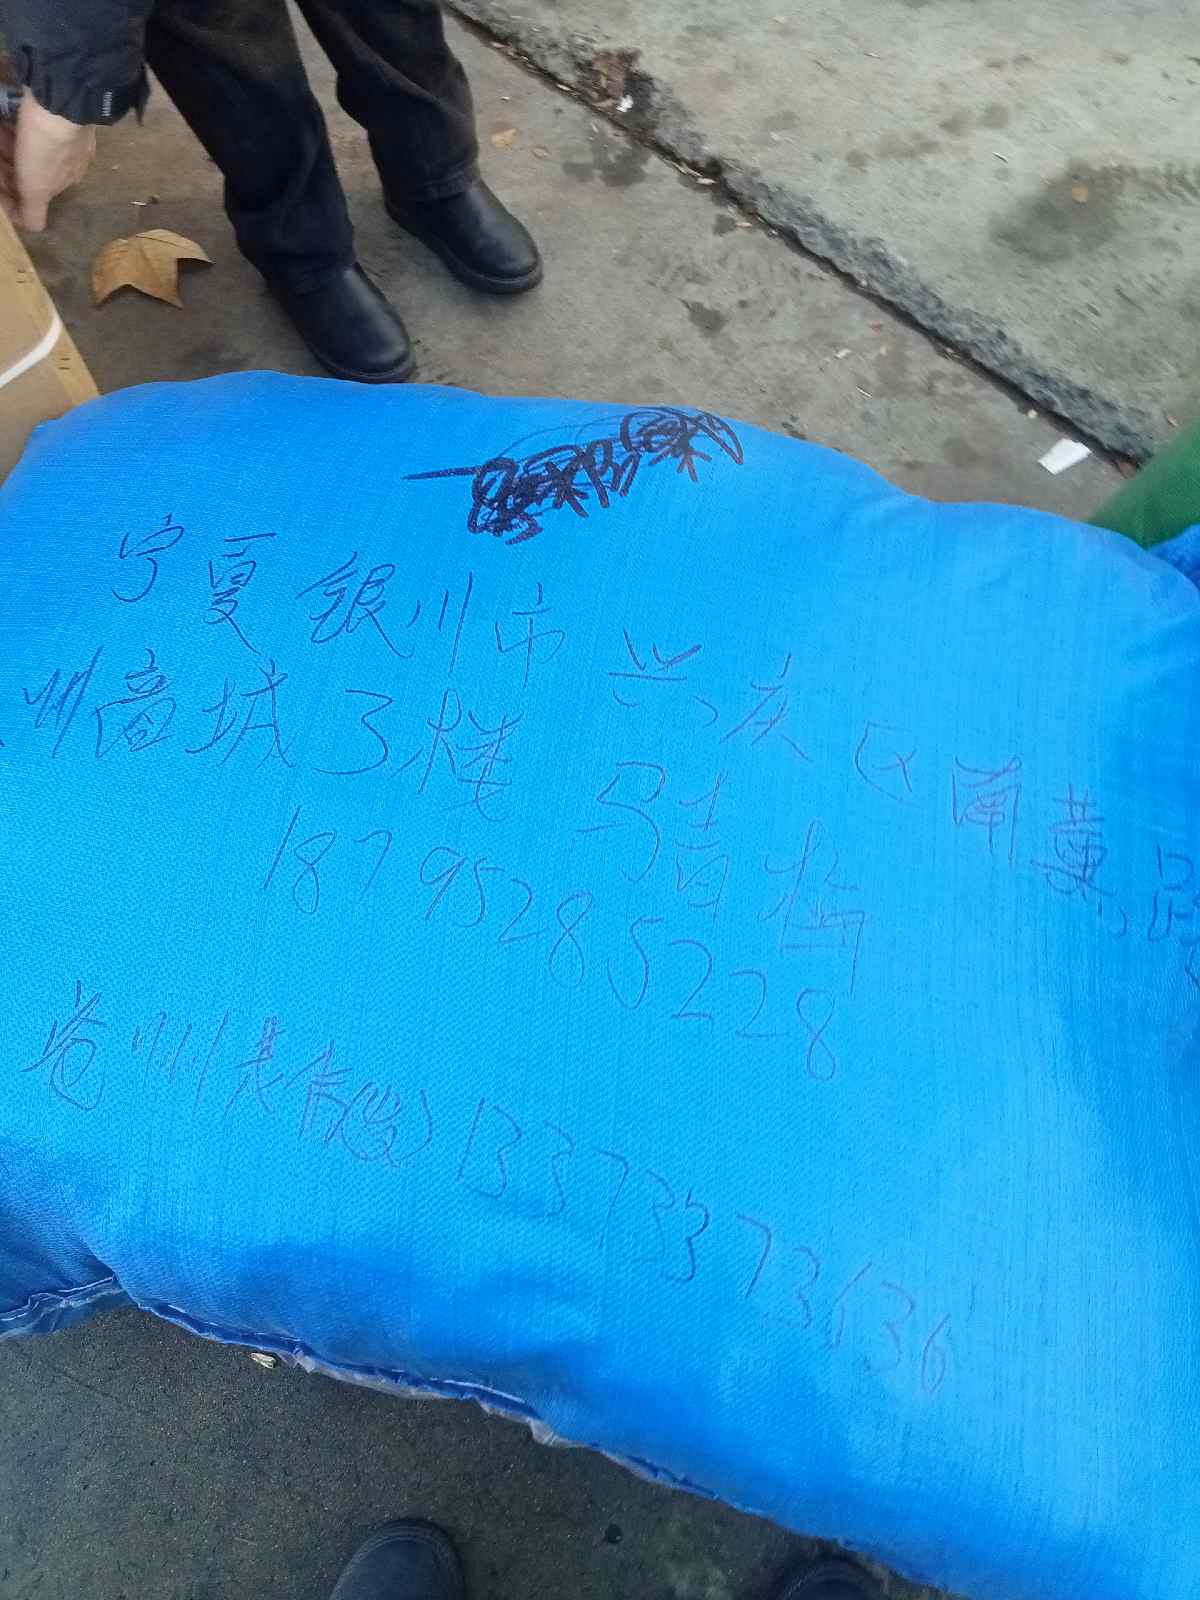 宁夏银川市兴庆区南薰
州商城3楼 马青梅
18795285228
沧州 13373373636